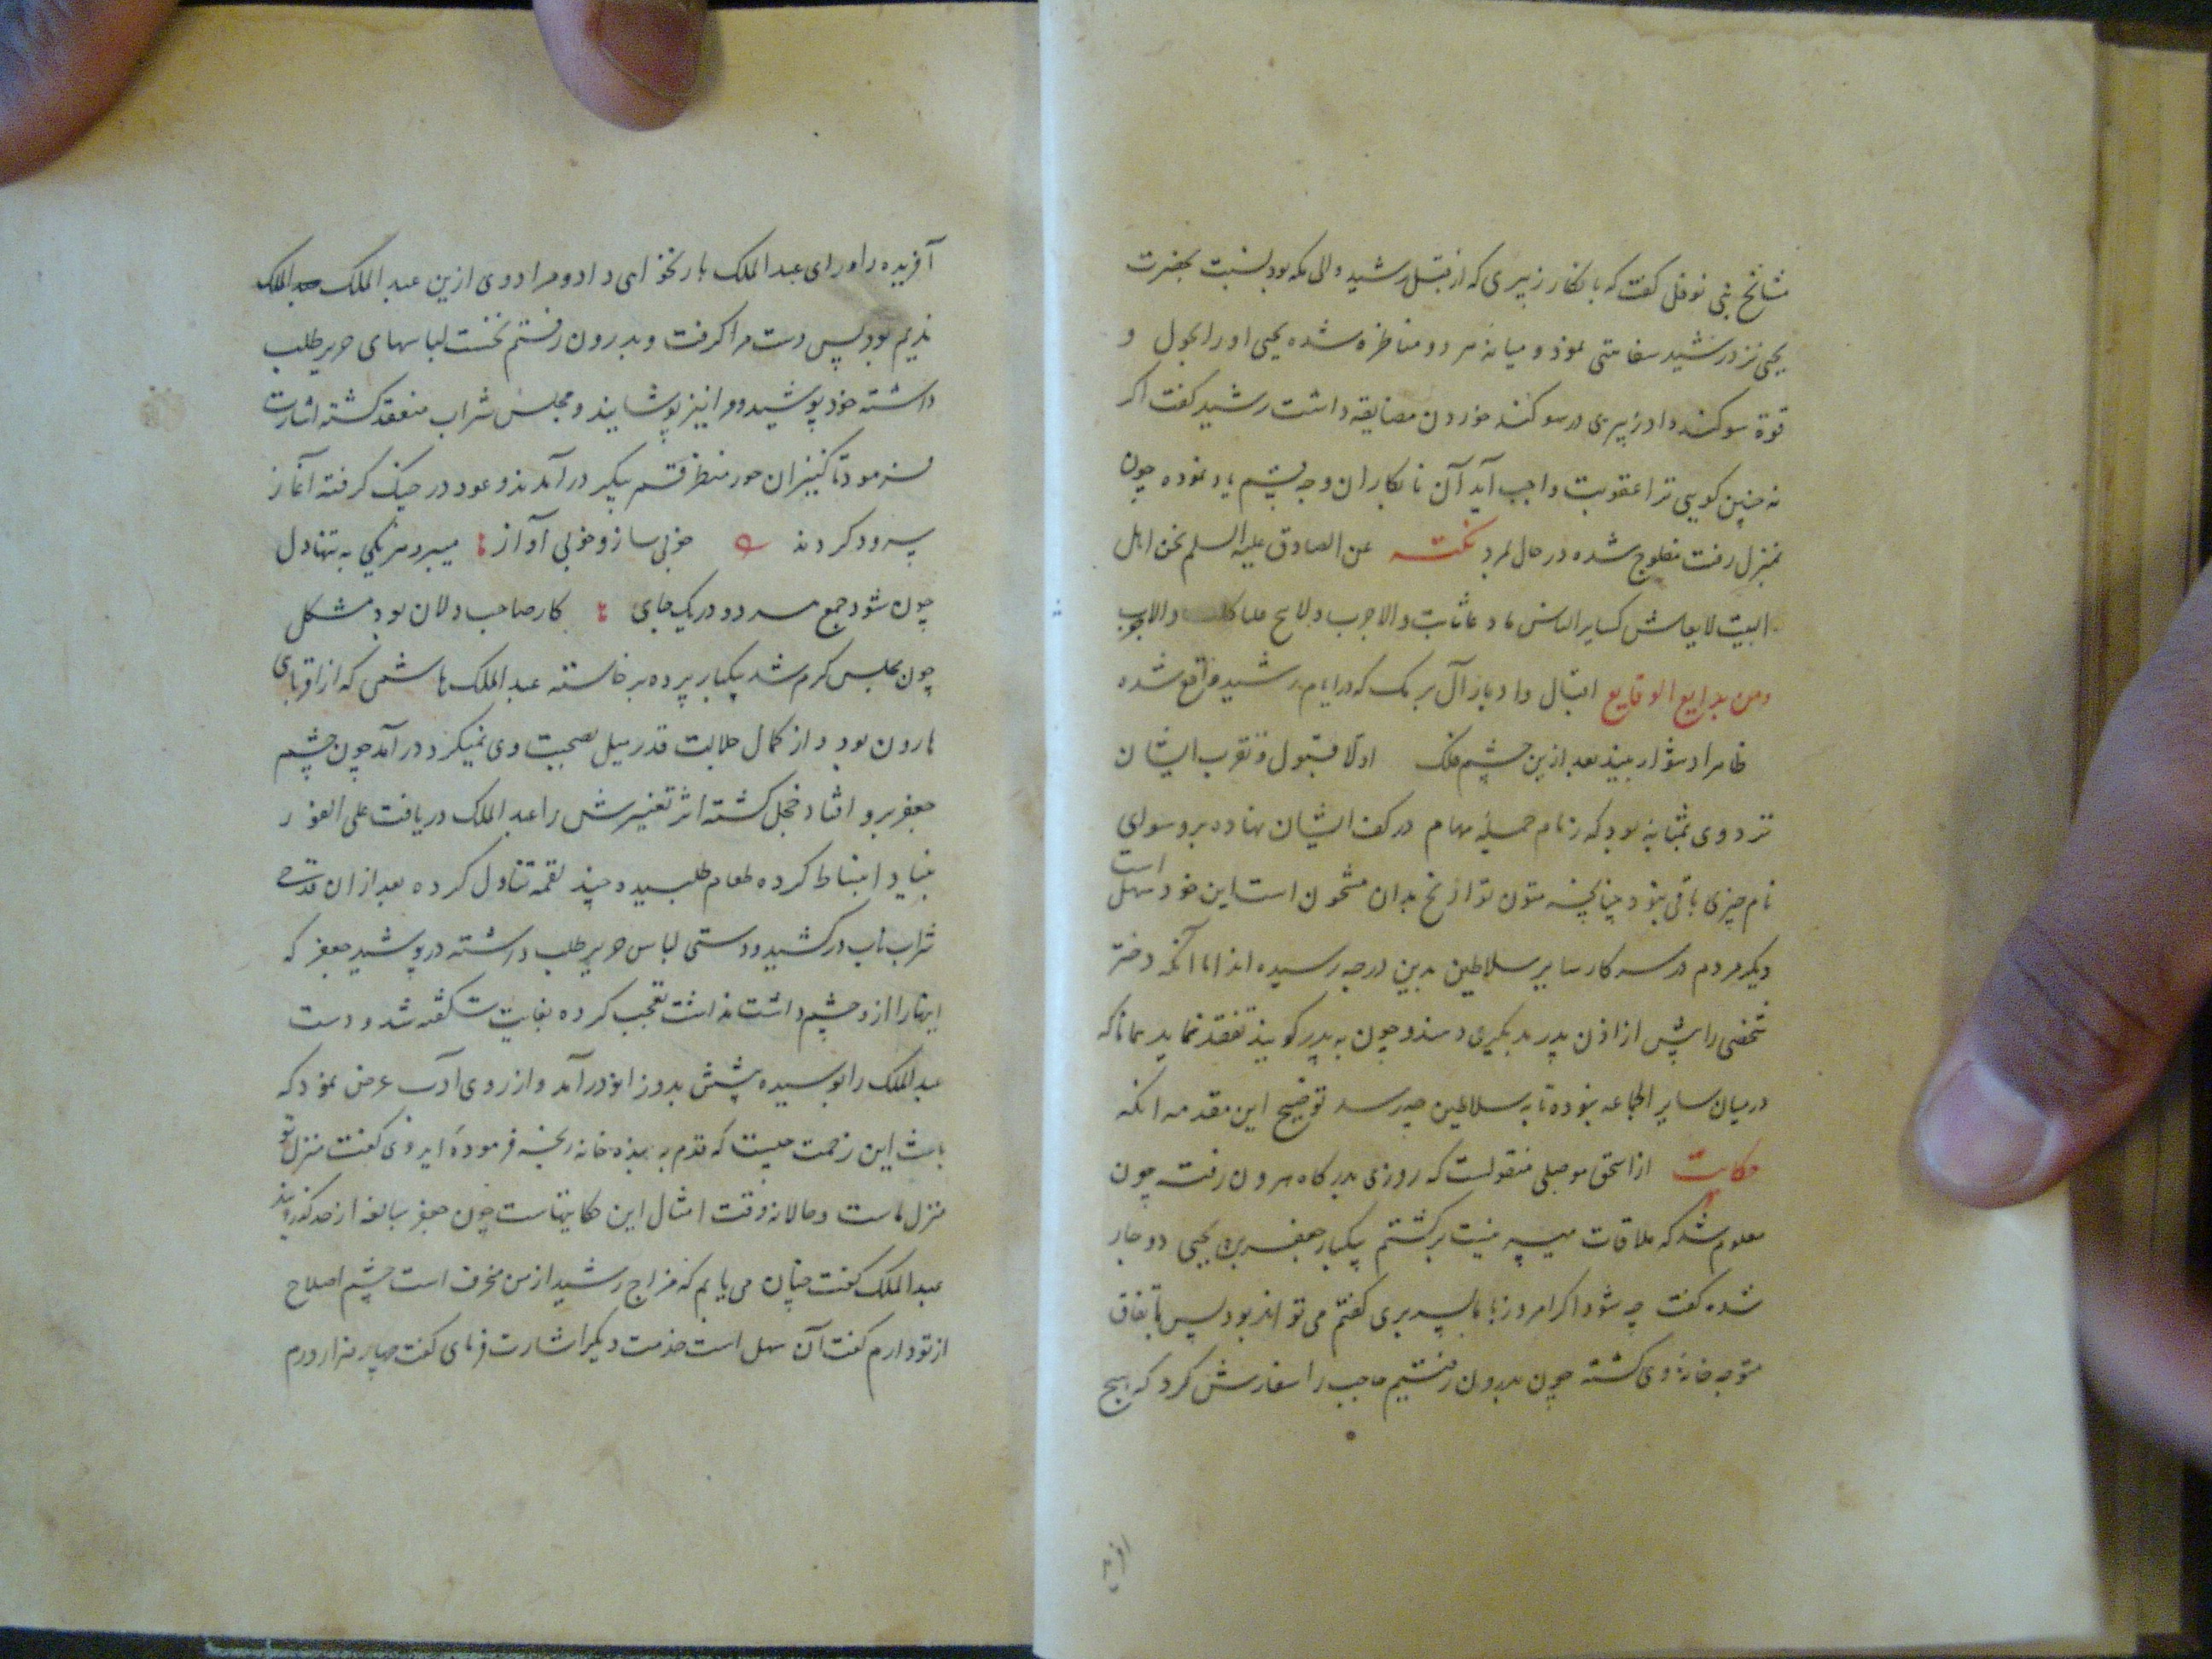 مشایخ بنی نوفل گفت که بکار زبیری که از قبل رشید والی مکه بود نسبت بحضرت
یحیی نزد رشید سفاهتی نمود و میانه هر دو مناظره شده یحیی او را بحول و
قوة سوکند داد زبیری در سوکند خوردن مضایقه داشت رشید کفت اکر
نه چنین کویی ترا عقوبت واجب آید آن نابکار ان وجه قسم یاد نموده چون
بمنزل رفت مفلوج شده در حال بمرد نکته عن الصادق علیه السلم نحن اهل
البیت لا
ومن بدایع الوقایع اقبال و ادبار آل برمک که در ایام رشید واقع شده
ظاهرا دشوار بیند بعد ازین چشم فلک اولا قبول و تقرب ایشان
نزد وی بمثابه بود که زمام جمیله مهام در کف ایشان نهاده بر وسوای
نام چیزی باقی نبود چنانچه متون تواریخ بدان مشحون است این خود سهل است
دیکر مردم در سرکار سایر سلاطین بدین درجه رسیده اند اما آنکه دختر
شخصی را پیش از اذن پدر بدیکری دهند و چون به پدر کویند تفقد نماید همانا که
درمیان سایر الجماعه نبوده تا به سلاطین چه رسد توضیح این مقدمه انکه
حکایت از اسحق موصلی منقولست که روزی بدرکاه هرون رفت چون
معلوم شد که ملاقات میسر نیست برکشتم یکبار جعفر بن یحیی دوچار
شده کفت چه شود اکر امروز با ما بسر بری کفتم می تواند بود پس باتفاق
متوجه خانه وی کشته چون بدرون رفتیم حاجب را سفارش کرد که هیچ
آفرید
آفریده را ورای عبد الملک بار نخواهی داد و مراد وی ازین عبد الملک عبد الملک
ندیم بود پس دست مرا کرفت و بدرون رفتم نخست لباسهای حریر طلب
داشته خود پوشید و مرا نیز پوشانید و مجلس شراب منعقد کشته اشارت
فرمود تا کنیزان حور منظر قمر پیکر در آمدند و عود در چنک کرفته آغاز
سرود کردند خوبی ساز و خوبی آواز میبرد هر یکی به تنها دل
چون شود جمع هر دو در یک جای کار صاحب دلان بود مشکل
چون مجلس کرم شد یکبار پرده برخاسته عبد الملک هاشمی که از اقربای
هارون بود و از کمال جلالت قدر میل بصحبت وی نمیکرد در آمد چون چشم
جعفر برو افتاد خجل کشته اثر تغییرش را عبد الملک دریافت علی الفور
بنیاد انبساط کرده طعام طلبید و چند لقمه تناول کرده بعد از ان قدحی
شراب ناب درکشید و دستی لباس حریر طلب داشته در پوشید جعفر که
اینها را ازو چشم داشت نداشت تعجب کرده بغایت شکفته شد و دست
عبد الملک را بوسیده پیشش بدو زانو در آمد و از روی ادب عرض نمود که
باعث این زحمت چیست که قدم به بنده خانه رنجه فرمودهٔ ایروی کفت منزل تو
منزل ماست و حالا نه وقت امثال این حکایتهاست چون جعفر مبالغه از حد کذرانید
عبد الملک کفت چنان می یابم که مزاج رشید از من منحرف است چشم اصلاح
از تو دارم کفت آن سهل است خدمت دیکر اشارت فرمای کفت چهار هزار درم